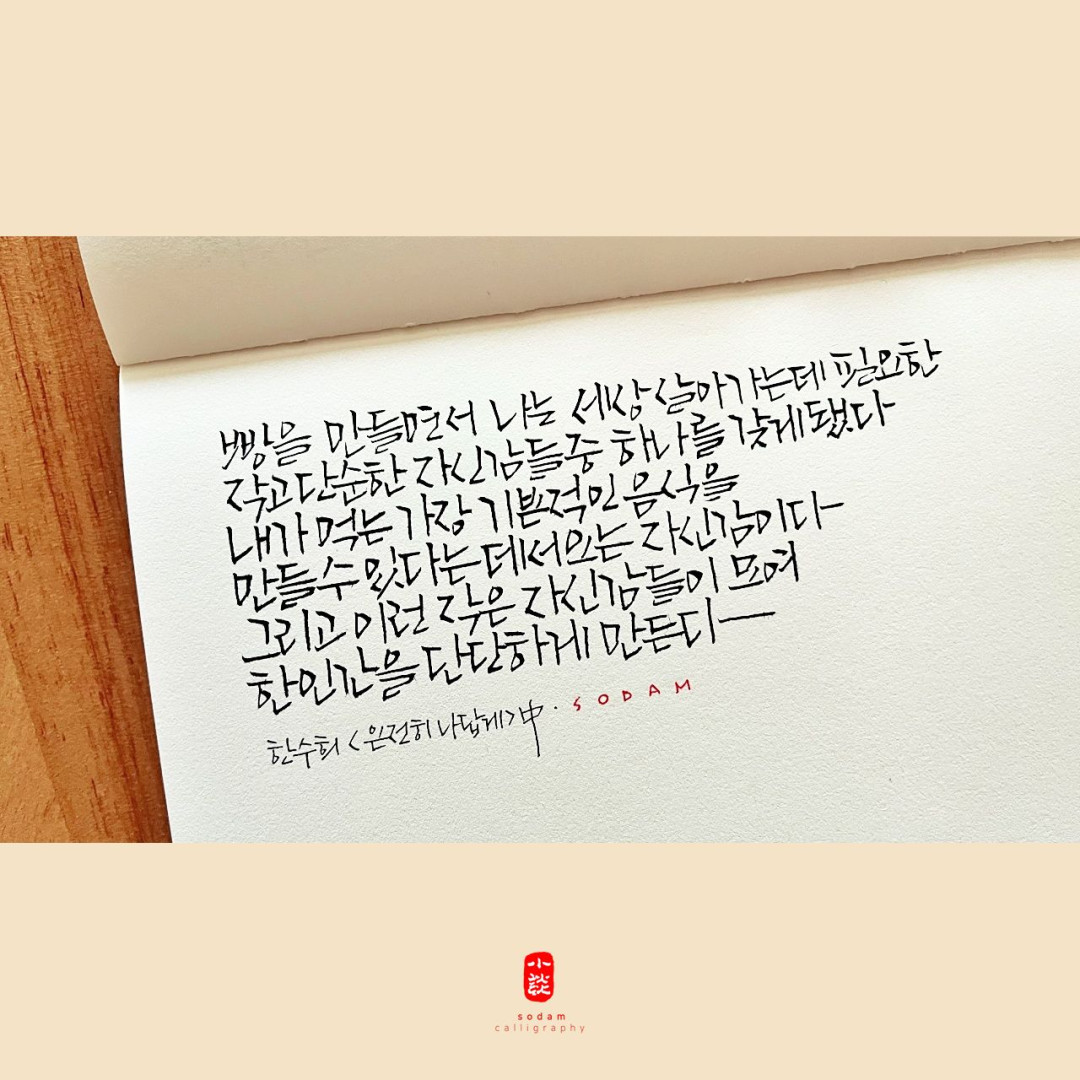 빵을 만들면서 나는 세상 살아가는데 필요한
작고 단순한 자신감들 중 하나를 갖게 됐다
내가 먹는 가장 기본적인 음식을
만들 수 있다는 데서 오는 자신감이다
그리고 이런 작은 자신감들이 모여
한 인간을 단단하게 만든다
한수희 <온전히 나답게> 中 · SODAM
小談
sodam
calligraphy